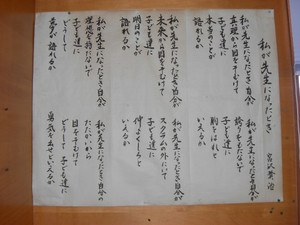 私が先生になったとき
宮沢賢治
私が先生になったとき自分が
真理から目をそむけて
子ども達に
本当のことが
語れるか
私が先生になったとき自分が
未来から目をそむけて
子ども達に
明日のことが
語れるか
私が先生になったとき自分が
理想を持たないで
子ども達に
どうして
夢が語れるか
私が先生になったとき自分が
誇りをもたないで
子ども達に
胸をはれと
いえるか
私が先生になったとき自分が
スクラムの外にいて
子ども達に
仲よくしろと
いえるか
私が先生になったとき自分の
たたかいから
目をそむけて
どうして子ども達に
勇気を出せといえるか